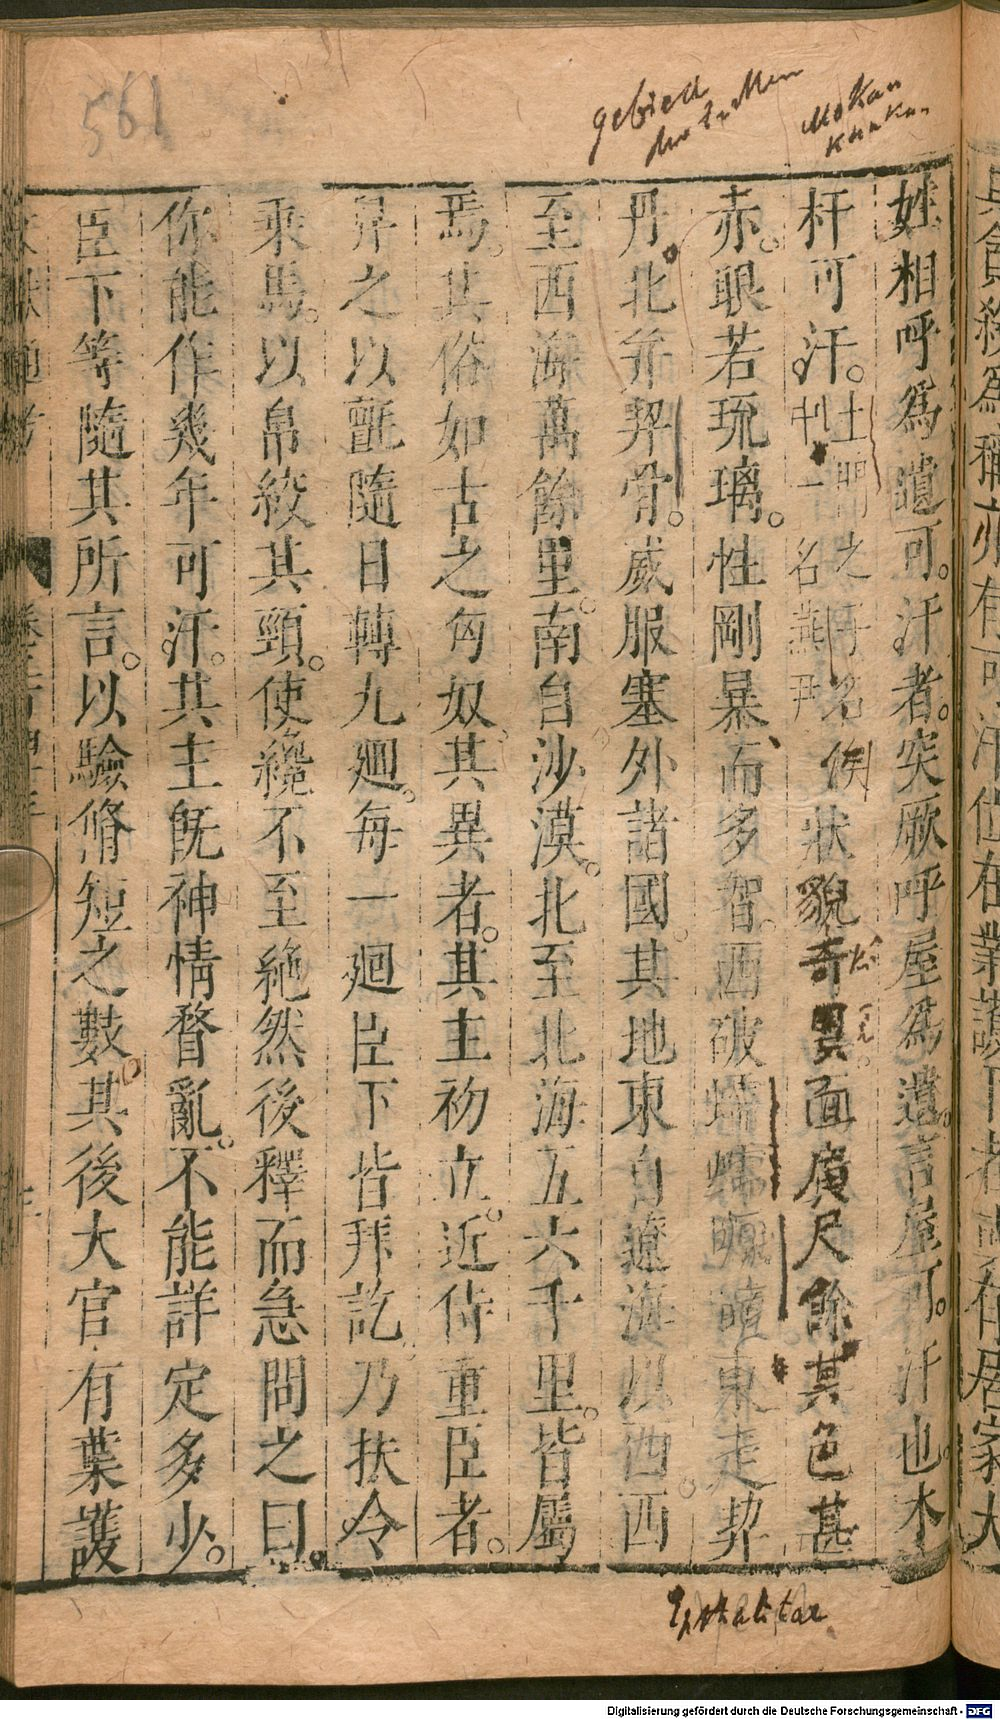 561
gebiet
Mokan
Khakan
姓相呼爲遺可汗者突厥呼屋爲遺言屋可汗也木
杆可汗土門之子名俟斗一名燕尹狀貌奇異面廣尺餘其色甚
赤眼若琉璃性剛暴而多智西破蠕蠕嚈噠東走契
丹北并契骨威服塞外諸國其地東自遼海以西西
至西海萬餘里南自沙漠北至北海五六千里皆屬
焉其俗如古之匈奴其異者其主初立近侍重臣者
舁之以氈隨日轉九廻每一廻臣下皆拜訖乃扶令
乘馬以帛絞其頸使纔不至絶然後釋而急問之曰
你能作幾年可汗其主既神情瞀亂不能詳定多少
臣下等隨其所言以驗脩短之數其後大官有葉護
Ephthalitae
Digitalisierung gefördert durch die Deutsche Forschungsgemeinschaft - DFG